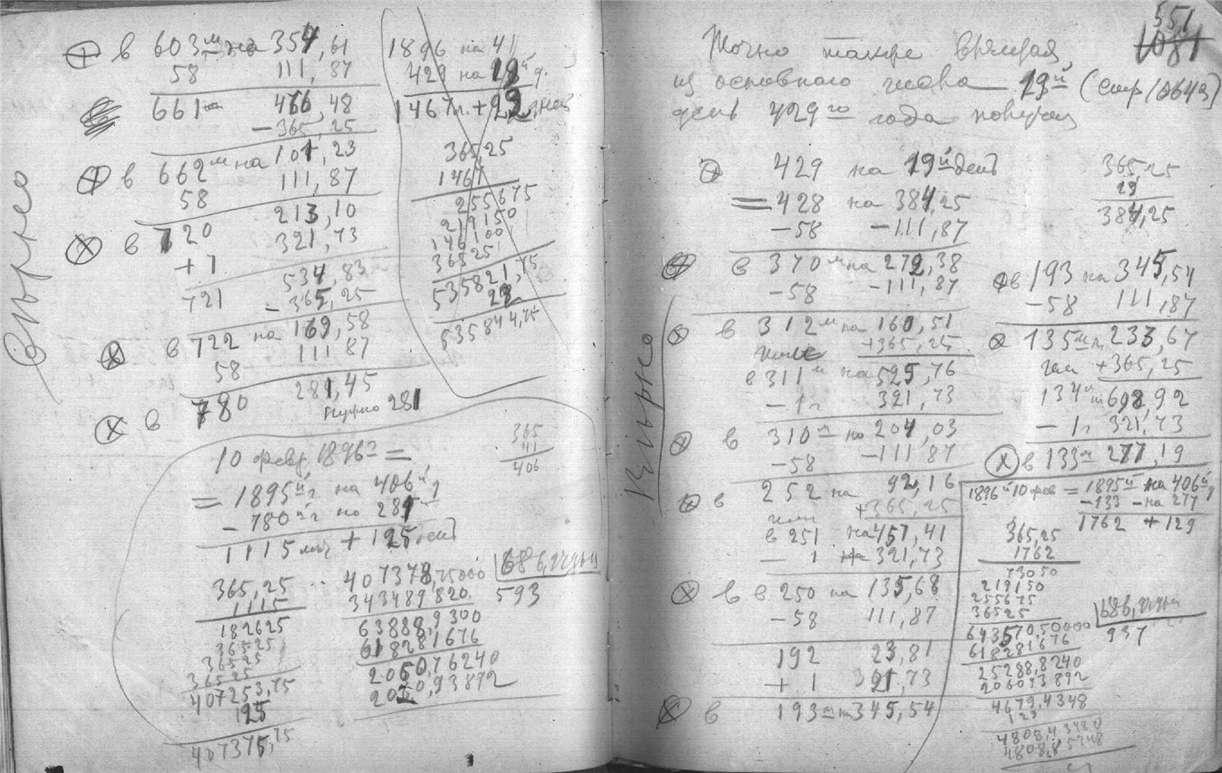 Верно
в 603м на 354,61
58 111,87
661 466,48
- 365,25
в 662м на 101,23
58 111,87
в 720 213,10
+ 1 321,73
721 534,83
- 365,25
в 722 на 169,58
58 111,87
в 780 281,45
нужно 281
1896 на 41
429 на
1467л. +
365,25
1467
255675
219150
146100
36525
535821,75
535844,75
10 февр. 1896 г =
365
41
406
= 1895й г на 406й д
- 780й г на 281
1115 + 125 дней
365,25
1115
182625
36525
36525
36525
407253,75
125
407378,75000
343489,820
593
63888,9300
61828 1676
2060,76240
2060,93892
551
1081
Точно также
из основного числа 19й (стр
день 429го года получил
429 на 19й день
365,25
19
384,25
= 428 на 384,25
- 58 - 111,87
в 370м на 272,38
- 58 - 111,87
в 312м на 160,51
или + 365,25
в 311м на 525,76
- 1 г 321,73
в 310м на 204,03
- 58 - 111,87
в 252 на 92,16
или + 365,25
в 251 на 457,41
- 1 321,73
в 250 на 135,68
- 58 111,87
192 23,81
+ 1 321,73
в 193 на 345,54
Верно
в 193 на 345,54
- 58 111,87
135 233,67
или + 365,25
134 598,92
- 1 г 321,73
в 133м 277,19
1896й 10 фев = 1895й на 406й д
- 133 - на 277
1762 + 129
365,25
1762
73050
219150
255675
36525
643570,50000
937
618281676
25288,8240
4679,4348
129
4808,4348